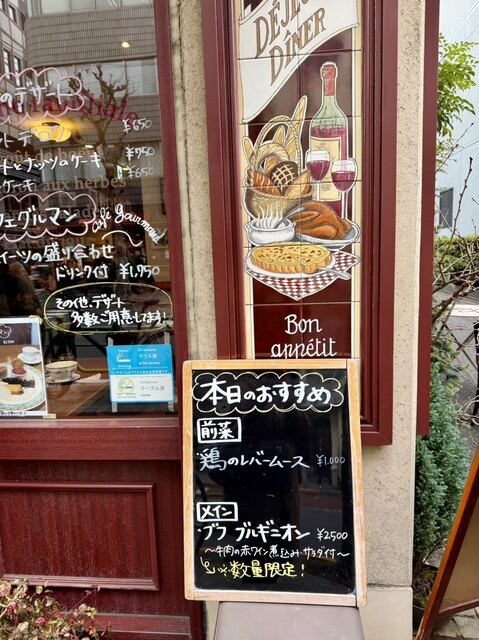 DÉJEUNER
DÎNER
のデザート
¥650
トとナッツのケーキ ¥750
ケーキ ¥650
aux herbes
フェグルマン
Café Gourmand
イーツの盛り合わせ
ドリンク付 ¥1,950
その他、デザート
多数ご用意してます!
Bon
appétit
本日のおすすめ
前菜
・鶏のレバームース ¥1,000
メイン
・ブフ ブルギニオン ¥2500
～牛肉の赤ワイン煮込み・サラダ付～
数量限定!